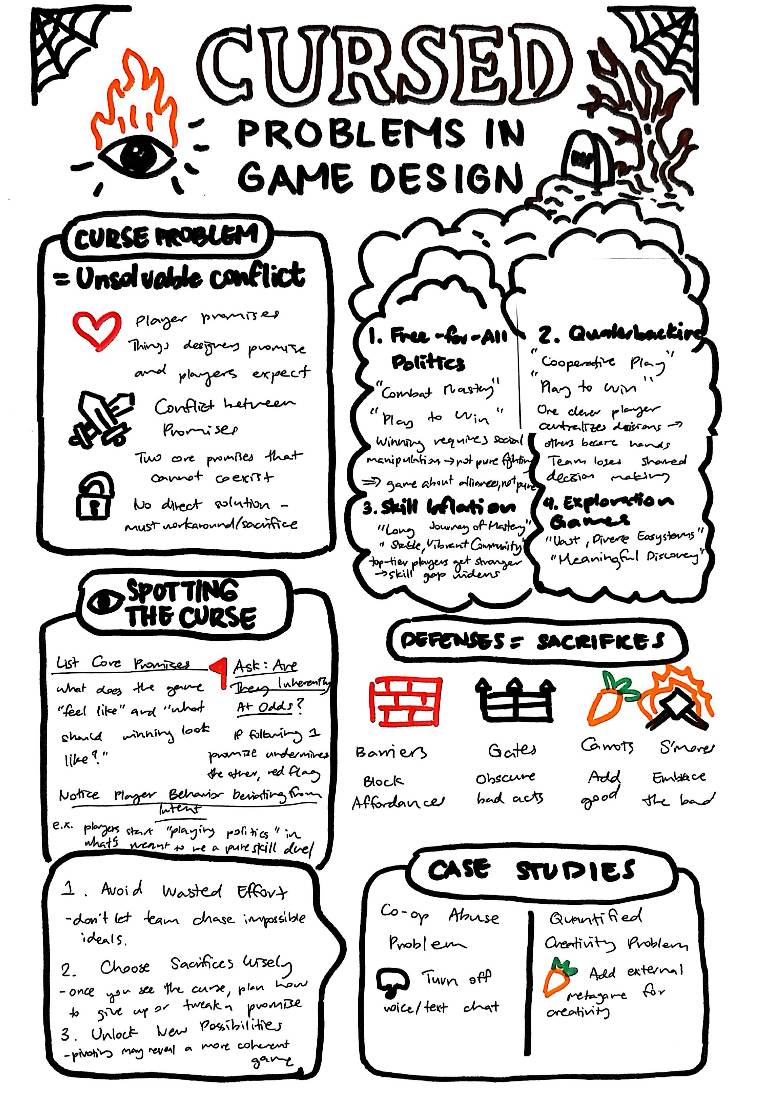 CURSED
PROBLEMS IN
GAME DESIGN
RIP
CURSE PROBLEM
= Unsolvable conflict
Player promises
Things designers promise
and players expect
Conflict between
Promises
Two core promises that
cannot coexist
No direct solution -
must workaround/sacrifice
1. Free-for-All
Politics
"Combat Mastery"
"Play to Win"
Winning requires social
manipulation → not pure fighting
⇒ game about alliances, not pure
2. Quaterbacking
"Cooperative Play"
"Play to Win"
One clever player
centralizes decisions →
others become hands
Team loses shared
decision making
3. Skill Inflation
"Long Journey of Mastery"
"Stable, Vibrant Community"
top-tier players get stronger
→ skill gap widens
4. Exploration
Games
"Vast, Diverse Ecosystems"
"Meaningful Discovery"
SPOTTING
THE CURSE
List Core Promises
what does the game
"feel like" and "what
should winning look
like?"
Ask: Are
They Inherently
At Odds?
IP following 1
promise undermines
the other, red flag
Notice Player Behavior Deviating from
Intent
e.x. players start "playing politics" in
what's meant to be a pure skill duel
1. Avoid Wasted Effort
-don't let team chase impossible
ideals.
2. Choose Sacrifices Wisely
- once you see the curse, plan how
to give up or tweak a promise
3. Unlock New Possibilities
-pivoting may reveal a more coherent
game
DEFENSES = SACRIFICES
Barriers
Block
Affordances
Gates
Obscure
bad acts
Carrots
Add
good
S'mores
Embrace
the bad
CASE STUDIES
Co-op Abuse
Problem
Turn off
voice/text chat
Quantified
Creativity Problem
Add external
metagame for
creativity